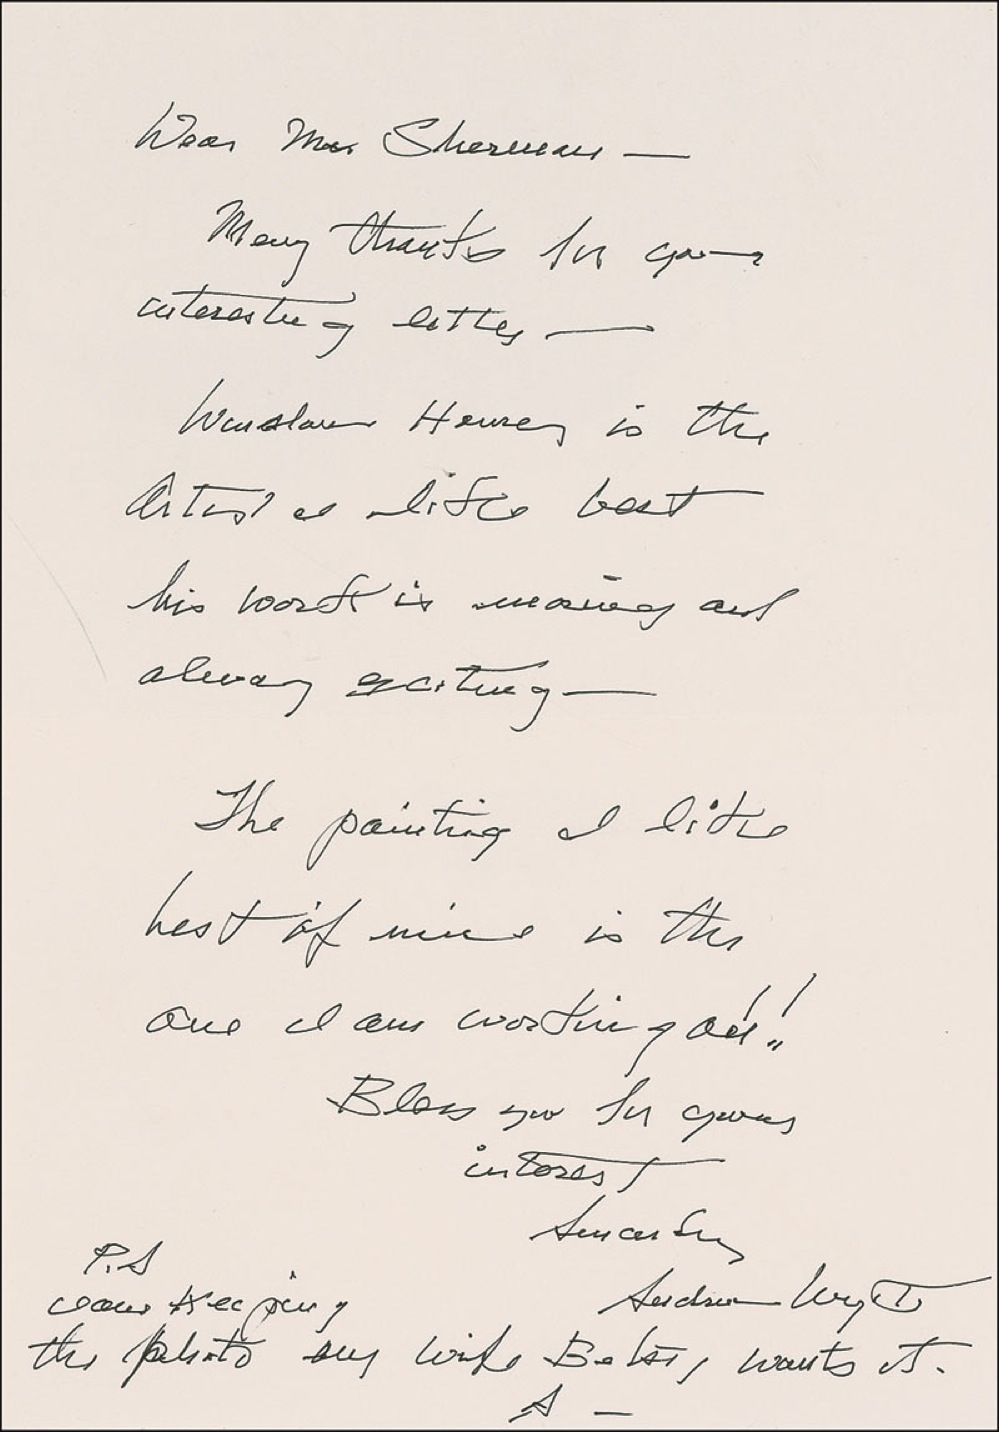 Dear Mr. Sherman —
Many thanks for your
interesting letter —
Winslow Homer is the
Artist I like best
his work is moving and
always exciting —
The painting I like
best of mine is the
one I am working on!!
Bless you for your
interest
Sincerely
Andrew Wyeth
P.S
I am keeping
the photo my wife Betsy, wants it.
A —